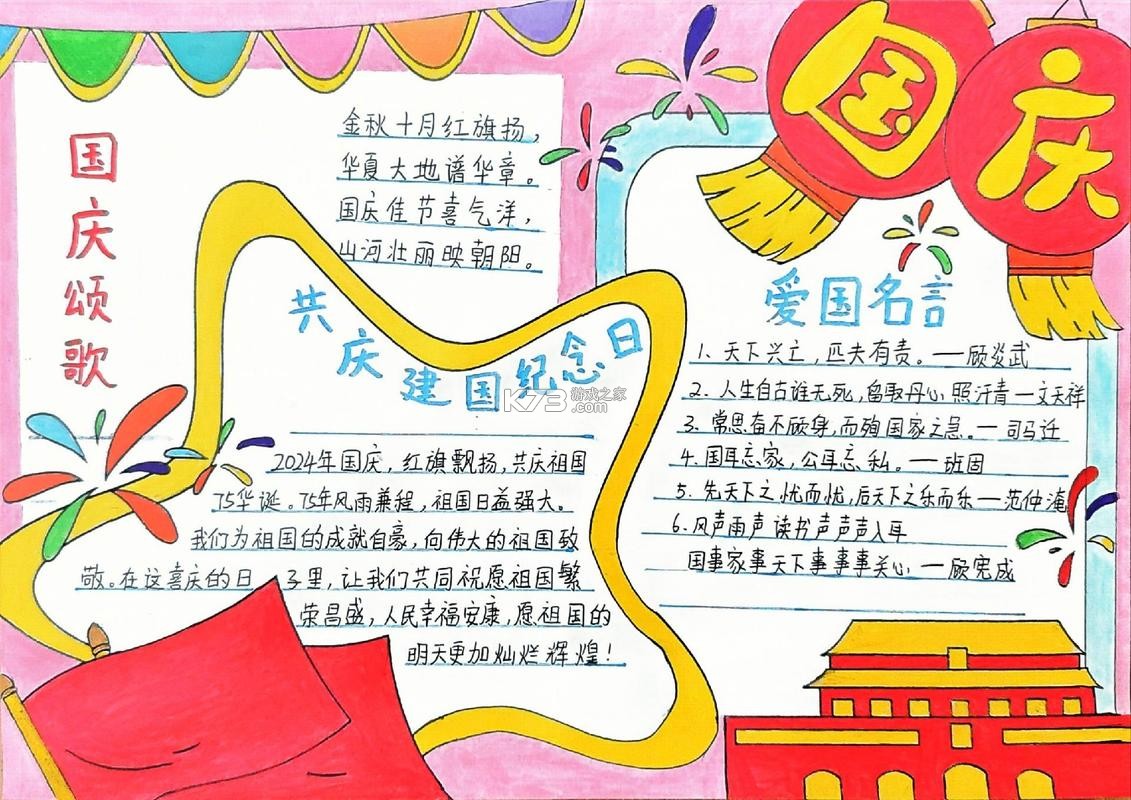 国庆
国庆颂歌
金秋十月红旗扬，
华夏大地谱华章。
国庆佳节喜气洋，
山河壮丽映朝阳。
共庆建国纪念日
2024年国庆，红旗飘扬，共庆祖国
75华诞。75年风雨兼程，祖国日益强大。
我们为祖国的成就自豪，向伟大的祖国致
敬。在这喜庆的日子里，让我们共同祝愿祖国繁
荣昌盛，人民幸福安康，愿祖国的
明天更加灿烂辉煌！
爱国名言
1、天下兴亡，匹夫有责。—顾炎武
2、人生自古谁无死，留取丹心照汗青—文天祥
3、常思奋不顾身，而殉国家之急。—司马迁
4、国耳忘家，公耳忘私。—班固
5、先天下之忧而忧，后天下之乐而乐—范仲淹
6、风声雨声读书声声声入耳
国事家事天下事事事关心—顾宪成
K73 游戏之家
.com